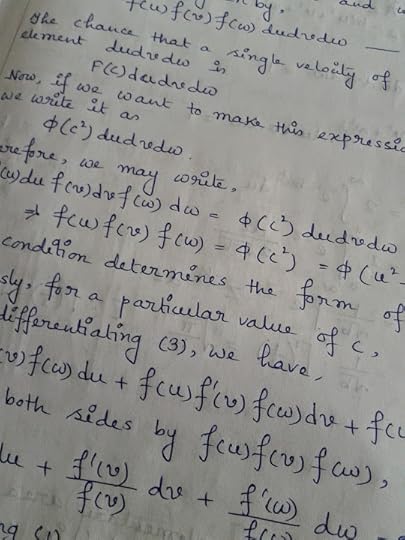 by, and
f(u) f(v) f(w) dudvdw
The chance that a single velocity of
element dudvdw is
F(c) dudvdw
Now, if we want to make this
we write it as
Φ(c²) dudvdw.
we may write,
du f(v) dv f(w) dw = Φ(c²) dudvdw
⇒ f(u) f(v) f(w) = Φ(c²) = Φ(u²-
condition determines the form of
for a particular value of c,
differentiating (3), we have,
f(w) du + f(u) f'(v) f(w) dv +
both sides by f(u) f(v) f(w),
du + f'(v)/f(v) dv + f'(w)/f(w) dw
(1)